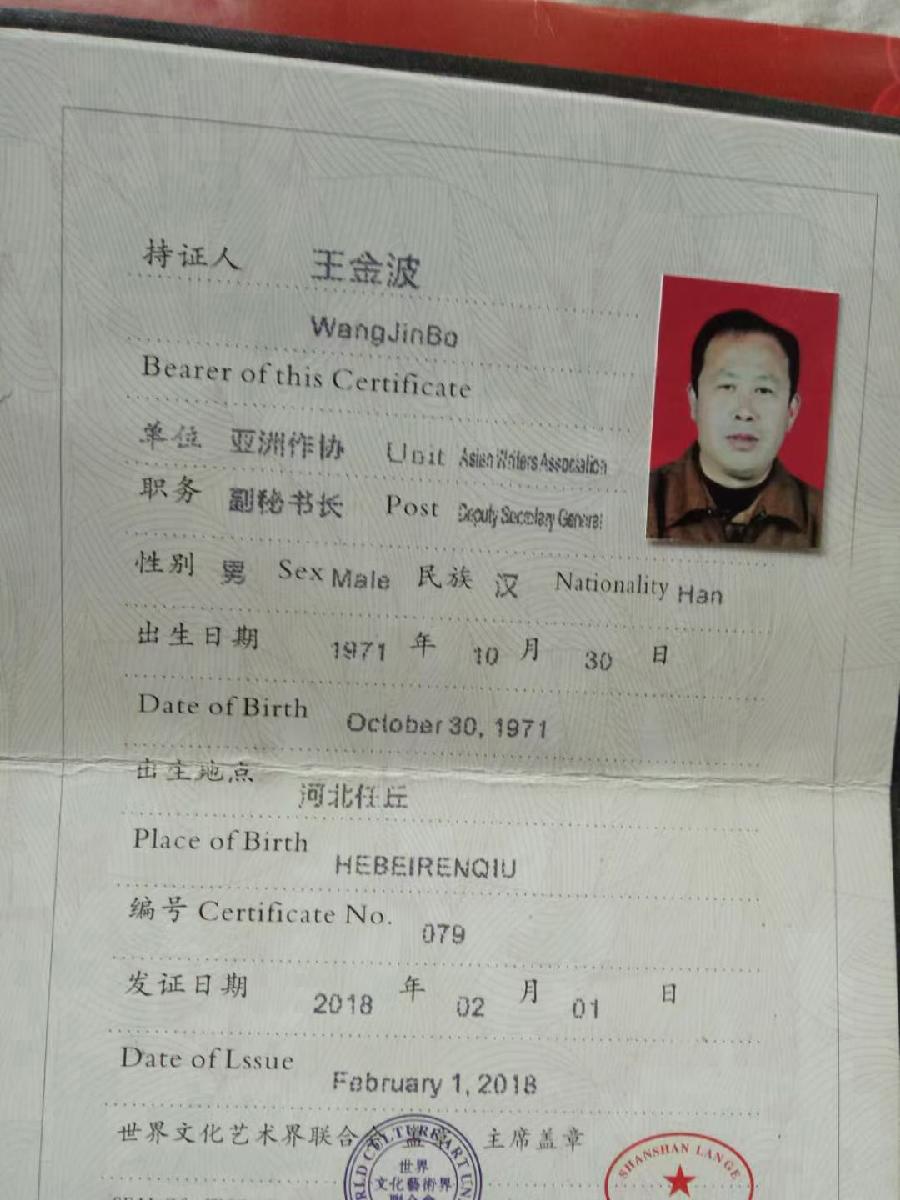 持证人 王金波
WangJinBo
Bearer of this Certificate
单位 亚洲作协 Unit Asian Writers Association
职务 副秘书长 Post Deputy Secretary General
性别 男 Sex Male 民族 汉 Nationality Han
出生日期 1971 年 10 月 30 日
Date of Birth October 30, 1971
出生地点 河北任丘
Place of Birth HEBEIRENQIU
编号 Certificate No. 079
发证日期 2018 年 02 月 01 日
Date of Lssue February 1, 2018
世界文化艺术界联合会 盖章 主席盖章
CULTURE ART
世界
文化藝術界
SHANSHAN LANGE